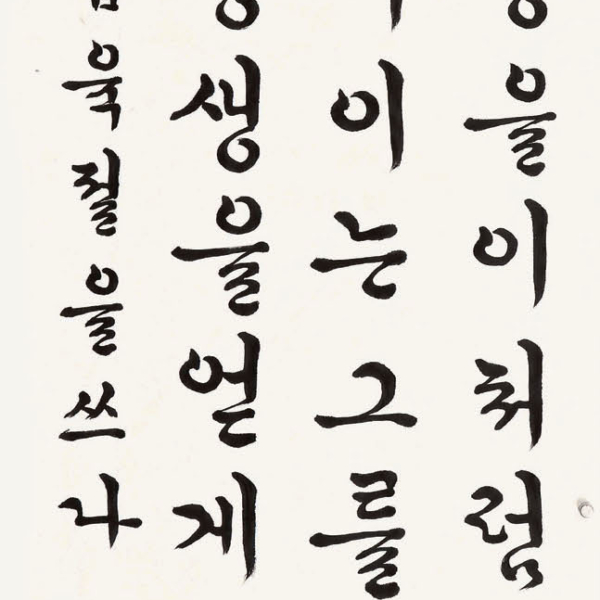 을이처럼
이는그를
생을얻게
육절을쓰나